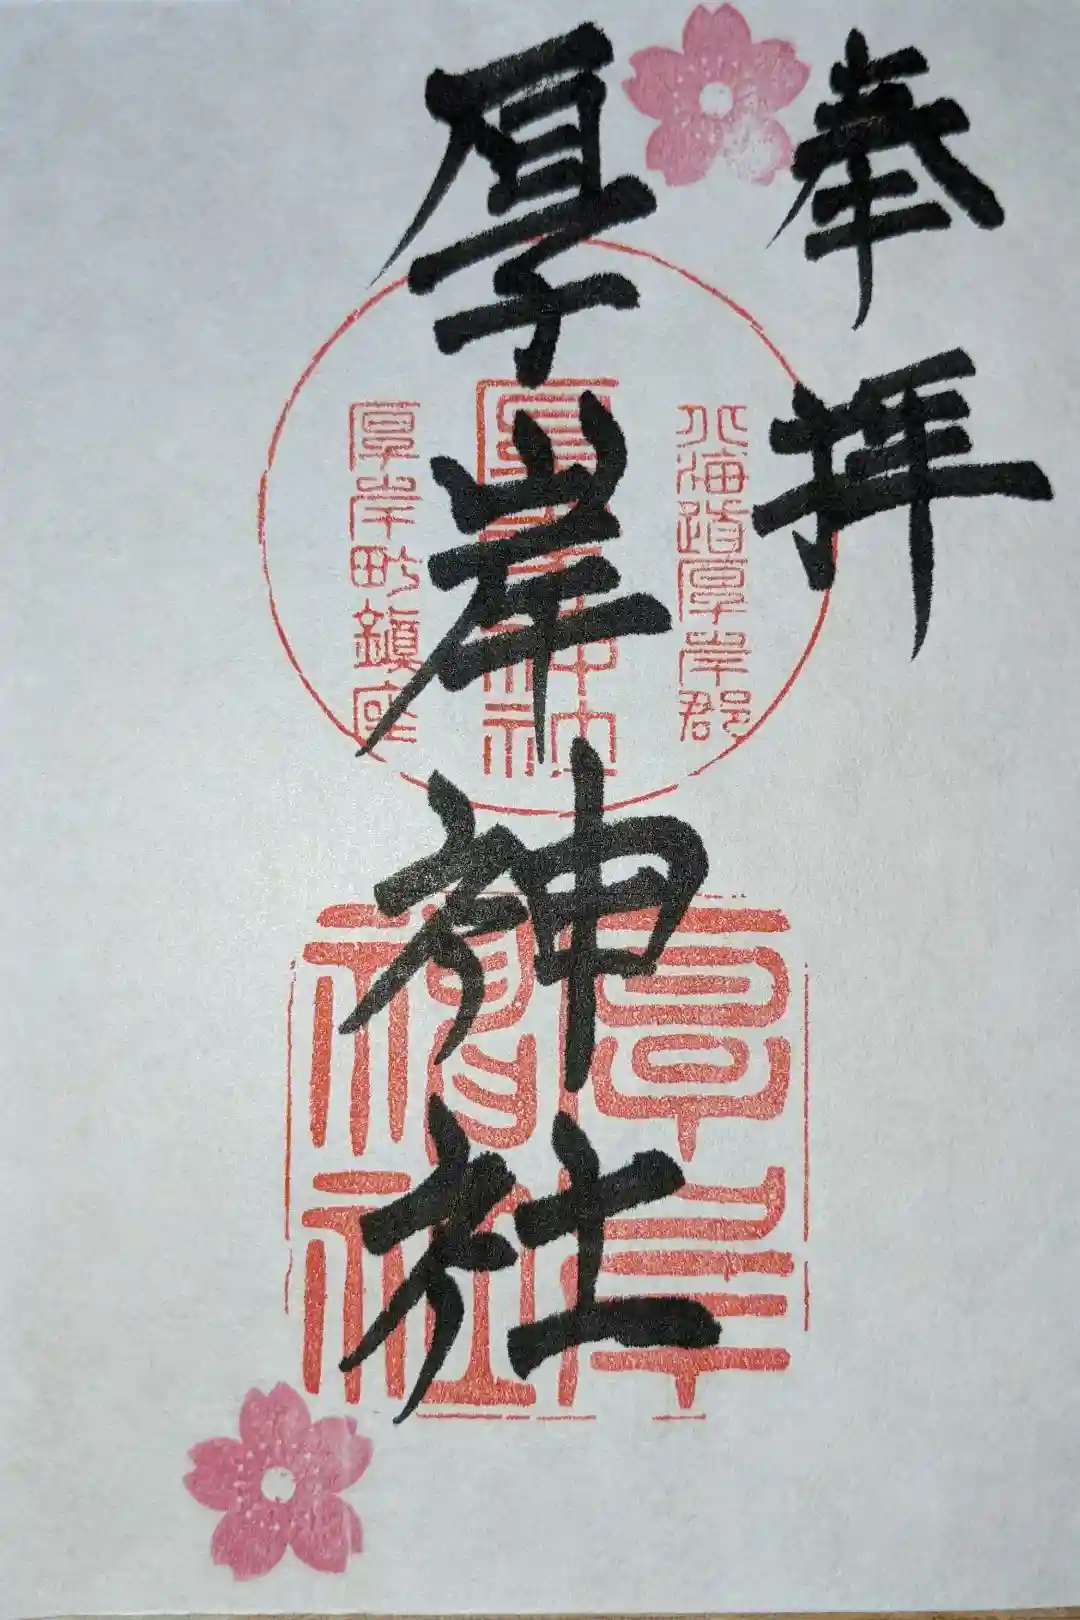 奉拝
厚岸神社
北海道厚岸郡
厚岸神社
厚岸町鎮座
厚岸
神社